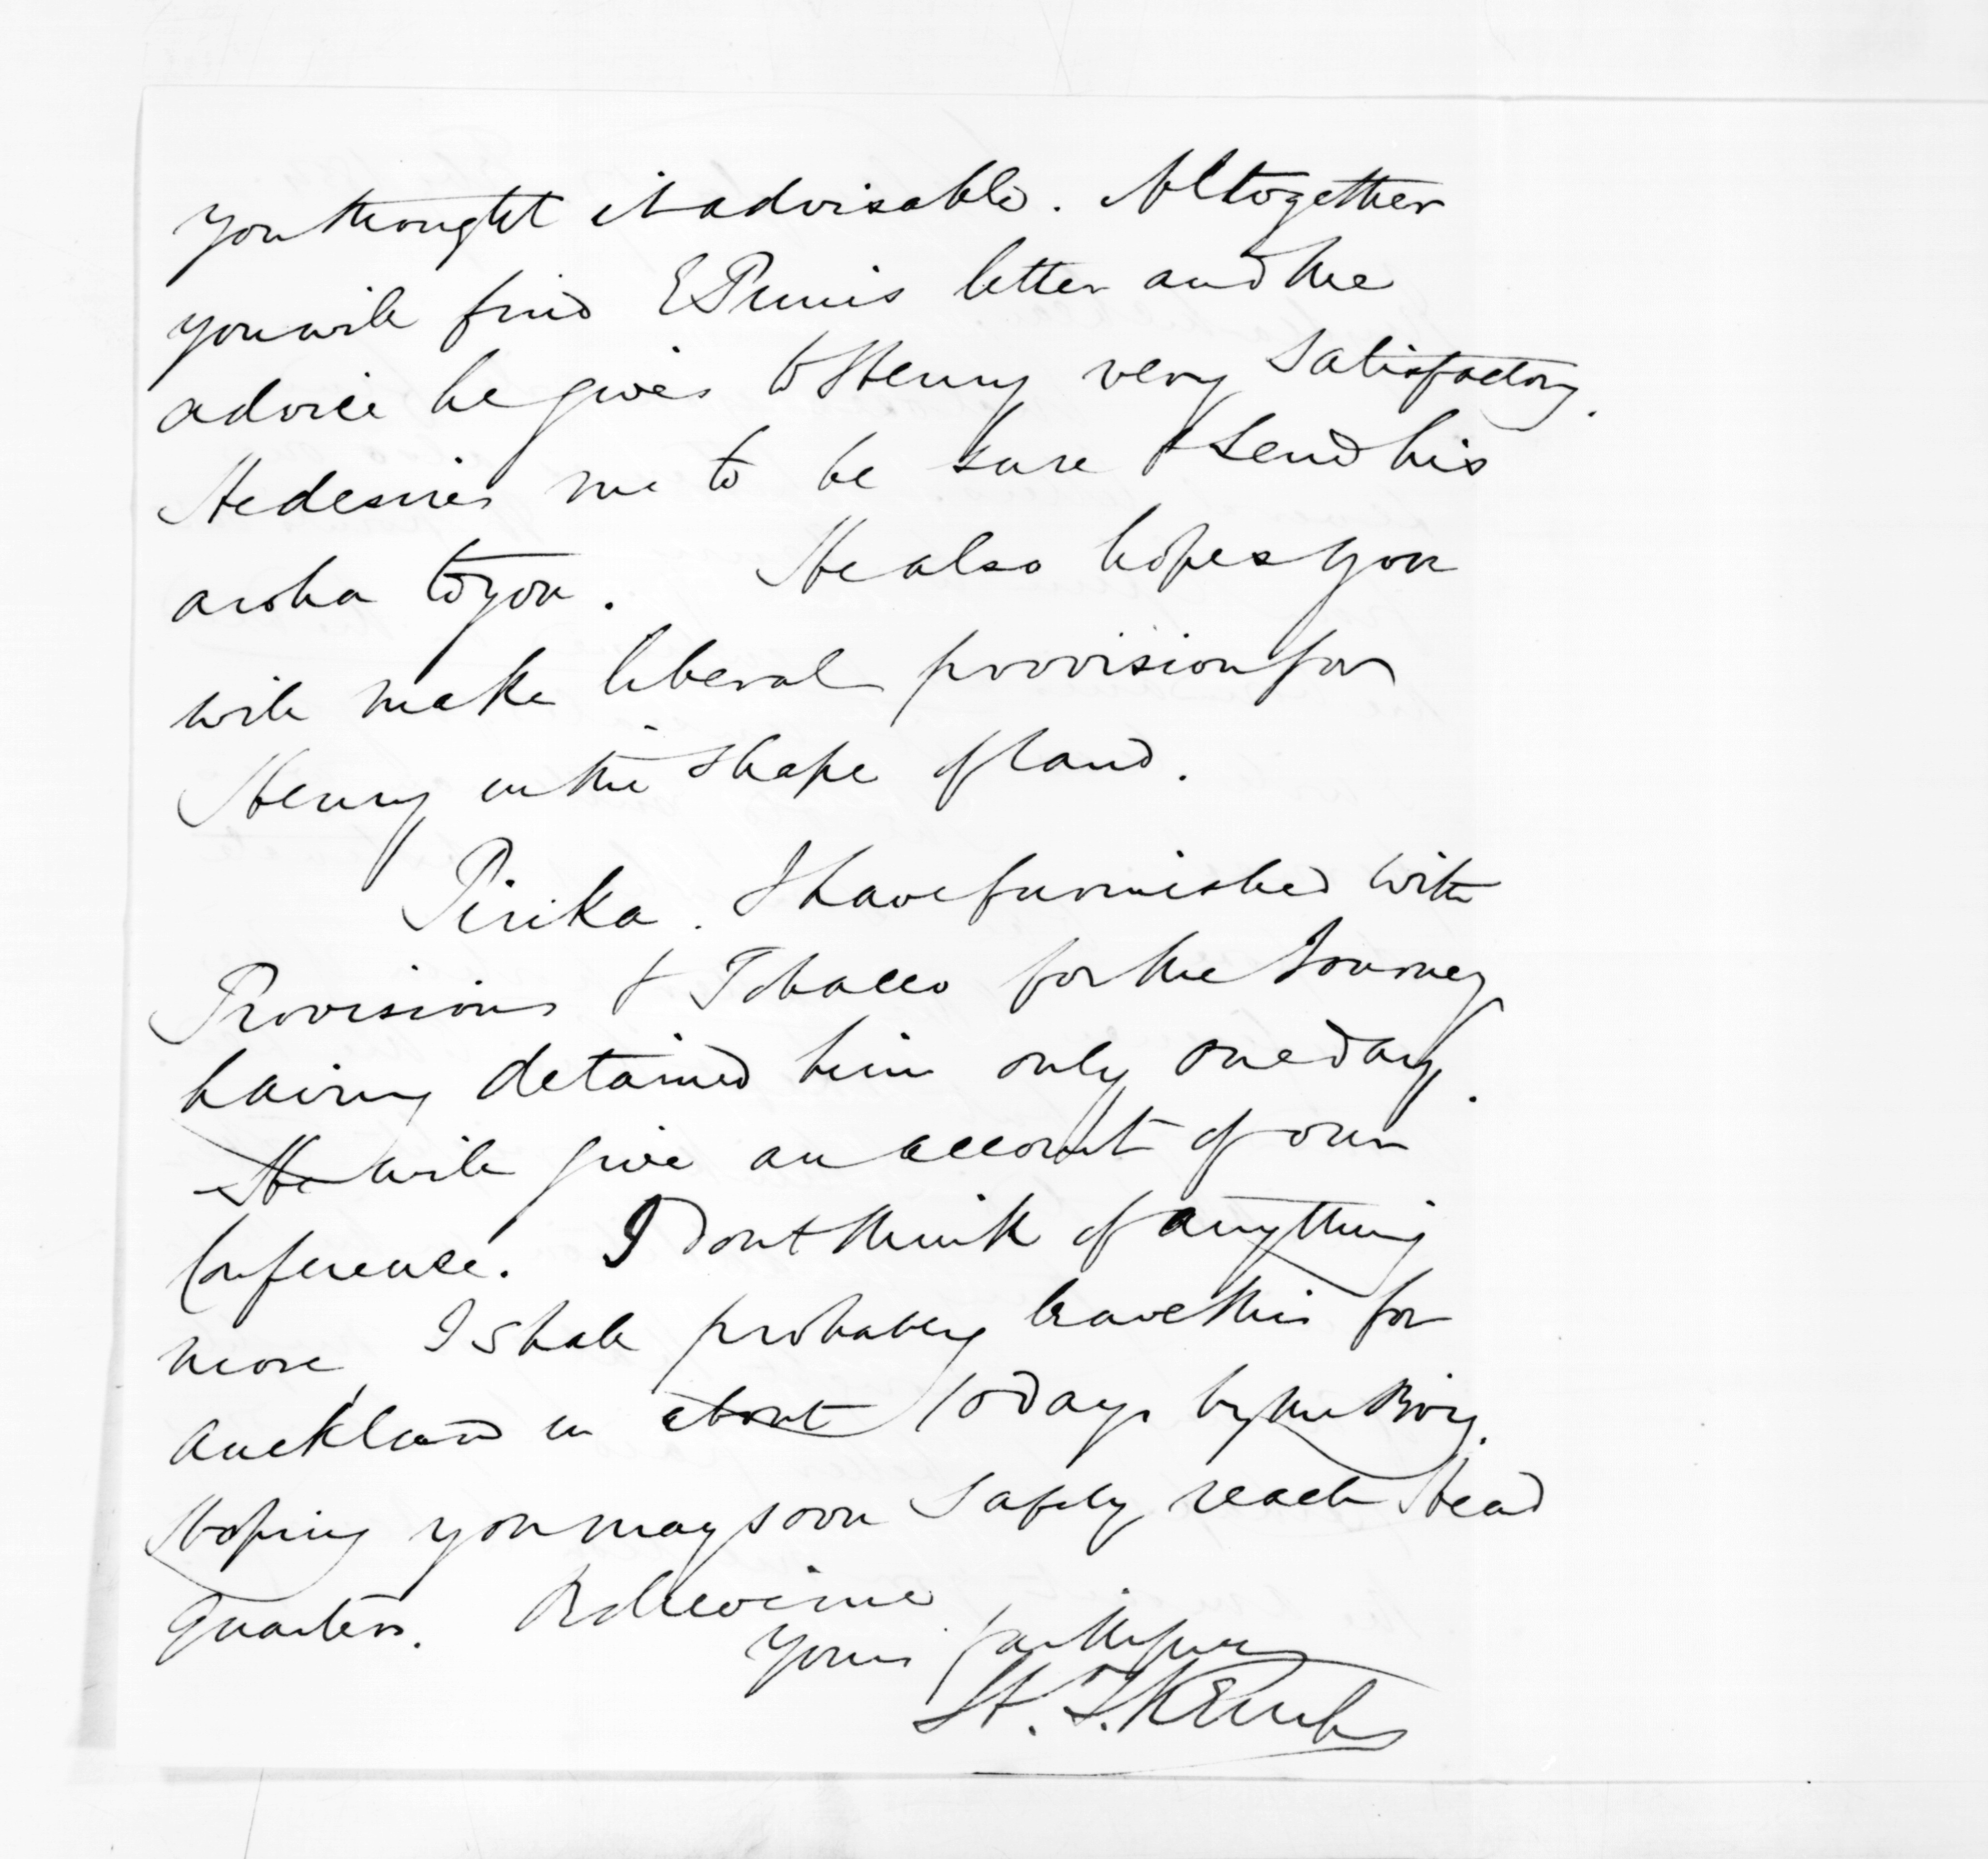 you thought it advisable. Altogether
you will find E Punis letter and the
advice he gives to Henry very satisfactory.
He desires me to be sure & send his
aroha to you. He also hopes you
will make liberal provision for
Henry in the shape of land.
Pirika. I have furnished with
Provisions & Tobacco for the Journey
having detained him only one day.
He will give an account of our
Conference. I dont think of anything
more, I shall probably leave this for
Auckland in about 10 days by the Brig.
Hoping you may soon safely reach Head
Quarters. Believe me
Yours faithfully
H. T. Kemp